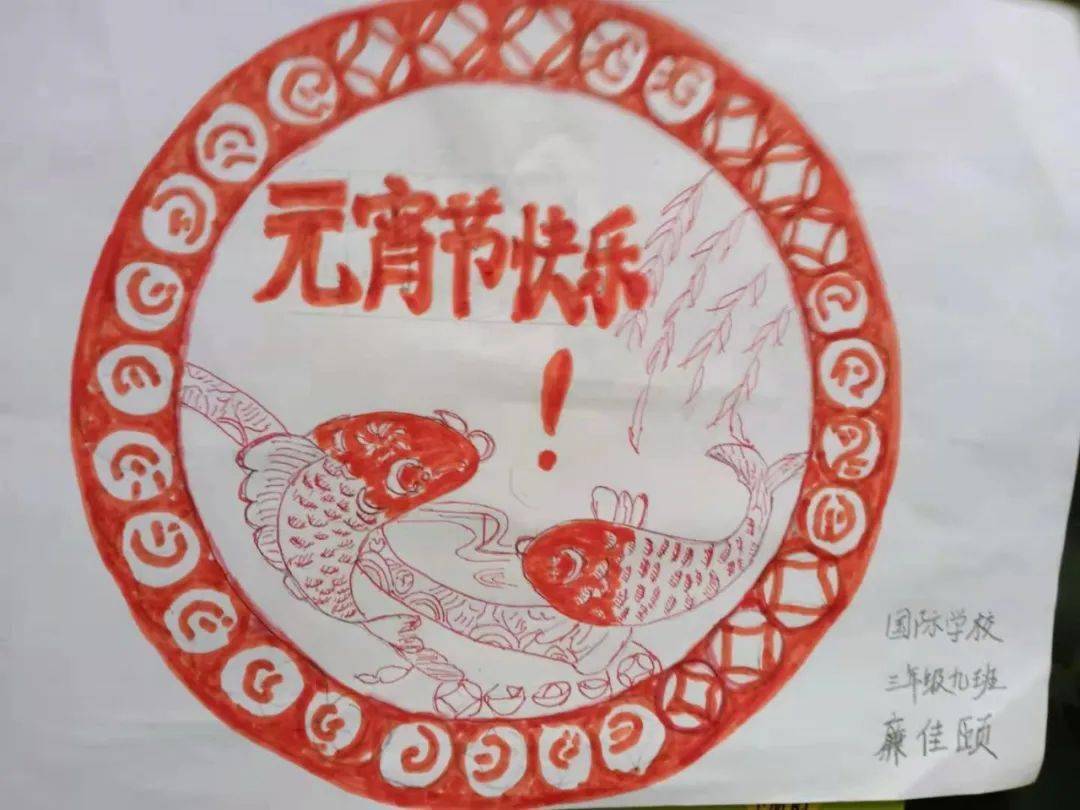 元宵节快乐
！
国际学校
三年级九班
糜佳颐